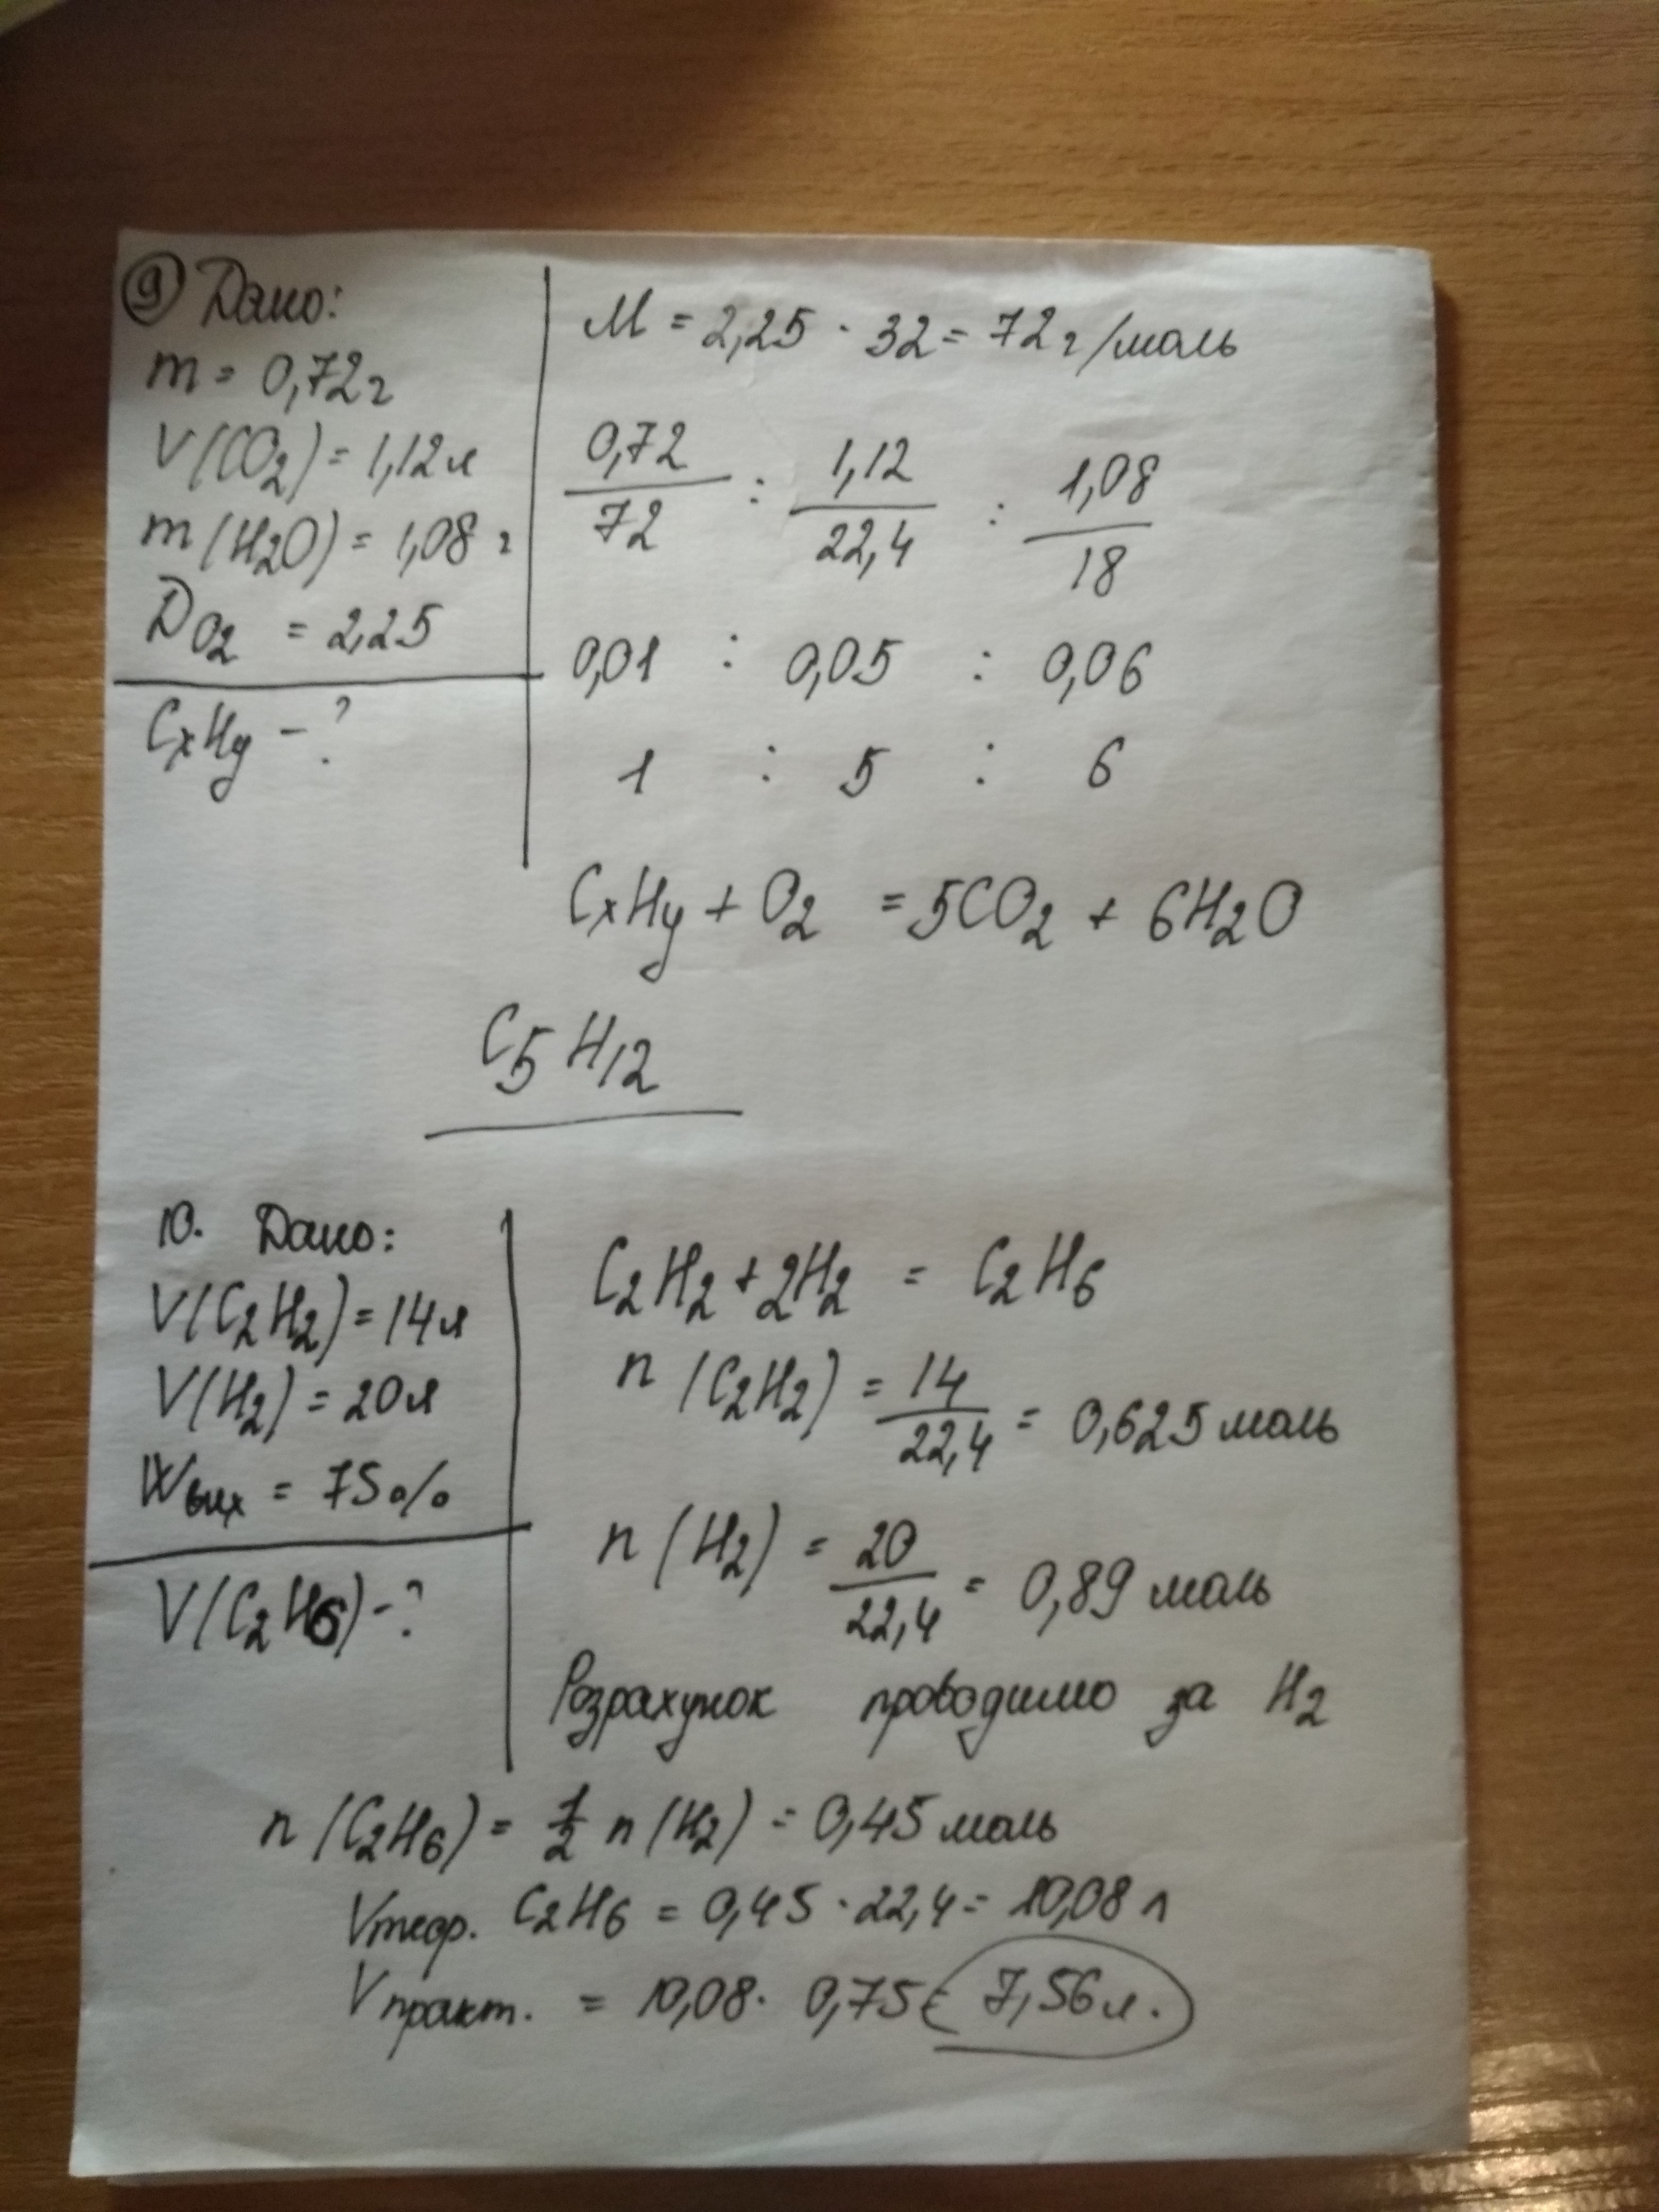 9 Дано:
m = 0,72 г
V(CO2) = 1,12 л
m(H2O) = 1,08 г
DO2 = 2,25
CxHy - ?
M = 2,25 · 32 = 72 г/моль
0,72/72 : 1,12/22,4 : 1,08/18
0,01 : 0,05 : 0,06
1 : 5 : 6
CxHy + O2 = 5CO2 + 6H2O
C5H12
10. Дано:
V(C2H2) = 14 л
V(H2) = 20 л
Wвих = 75 %
V(C2H6) - ?
C2H2 + 2H2 = C2H6
n(C2H2) = 14/22,4 = 0,625 моль
n(H2) = 20/22,4 = 0,89 моль
Розрахунок проводимо за H2
n(C2H6) = 1/2 n(H2) = 0,45 моль
Vтеор. C2H6 = 0,45 · 22,4 = 10,08 л
Vпракт. = 10,08 · 0,75 = 7,56 л.